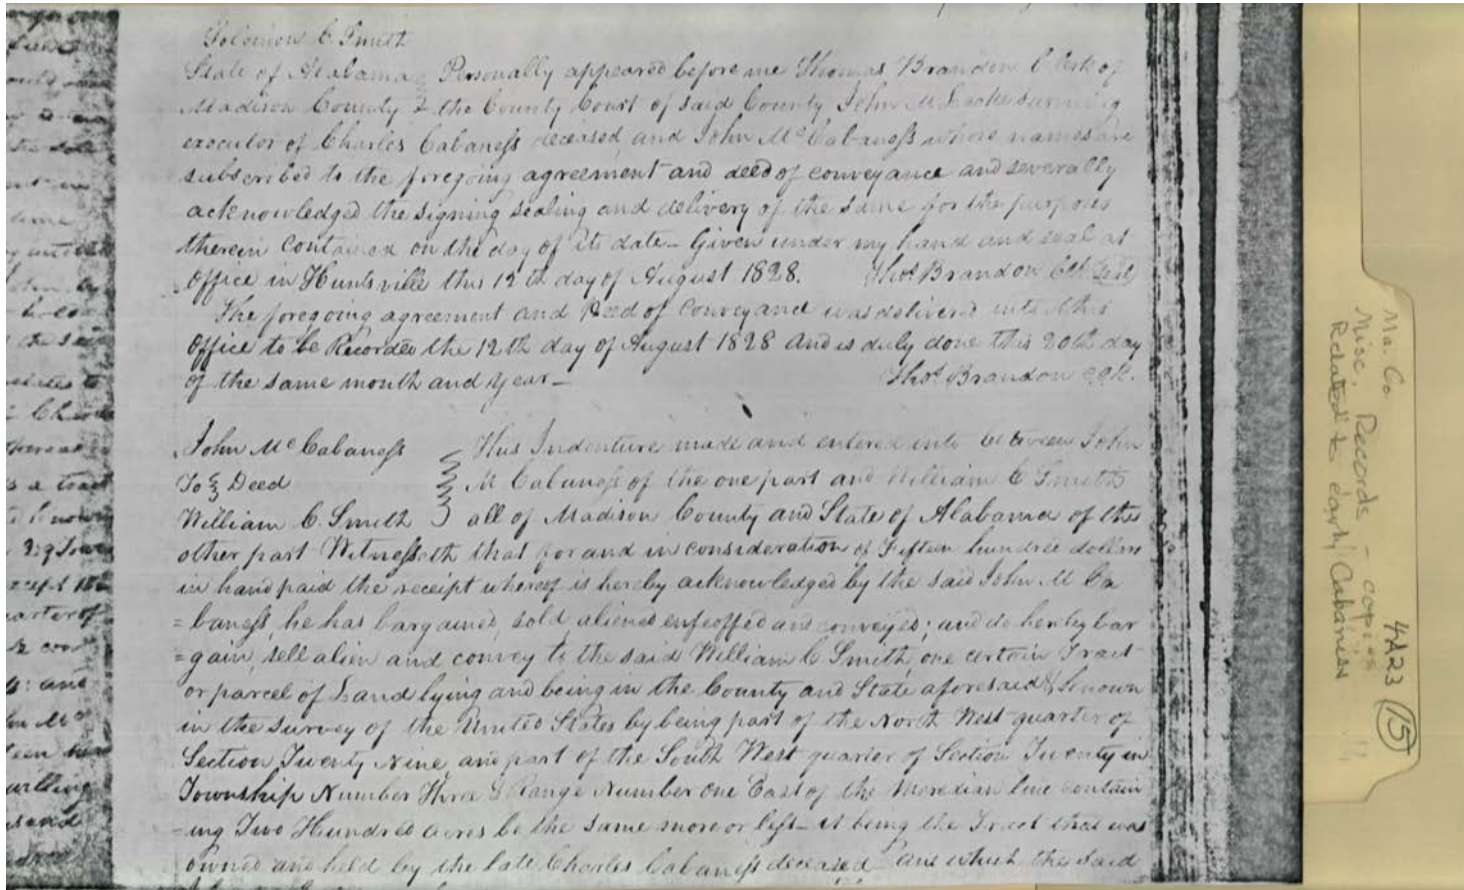 Solomon C Smith
State of Alabama Personally appeared before me Thomas Brandon Clerk of
Madison County & the County Court of said County John M Leake surviving
executor of Charles Cabaness deceased and John Mc Cabaness whose names are
subscribed to the foregoing agreement and deed of conveyance and severally
acknowledged the signing sealing and delivery of the same for the purposes
therein contained on the day of its date - Given under my hand and seal at
Office in Huntsville this 12th day of August 1828. Thos Brandon Clk Seal
The foregoing agreement and Deed of Conveyance was delivered into this
Office to be Recorded the 12th day of August 1828 And is duly done this 20th day
of the same month and year - Thos Brandon
John Mc Cabaness
To Deed
William C. Smith
This Indenture made and entered into between John
M Cabaness of the one part and William C Smith
all of Madison County and State of Alabama of the
other part Witnesseth that for and in consideration of Fifteen hundred dollars
in hand paid the receipt whereof is hereby acknowledged by the said John M Ca
=baness, he has bargained, sold aliened enfeoffed and conveyed; and do hereby bar
=gain, sell alien and convey to the said William C Smith, one certain Tract
or parcel of Land lying and being in the County and State aforesaid & known
in the survey of the United States by being part of the North West quarter of
Section Twenty Nine and part of the South West quarter of Section Twenty in
Township Number Three & Range Number one East of the Meredian line contain
=ing Two Hundred acres be the same more or less - it being the Tract that was
owned and held by the late Charles Cabaness deceased and which the said
Ma. Co. 4A23 (15)
Misc. Records - copies
Related to early Cabaness